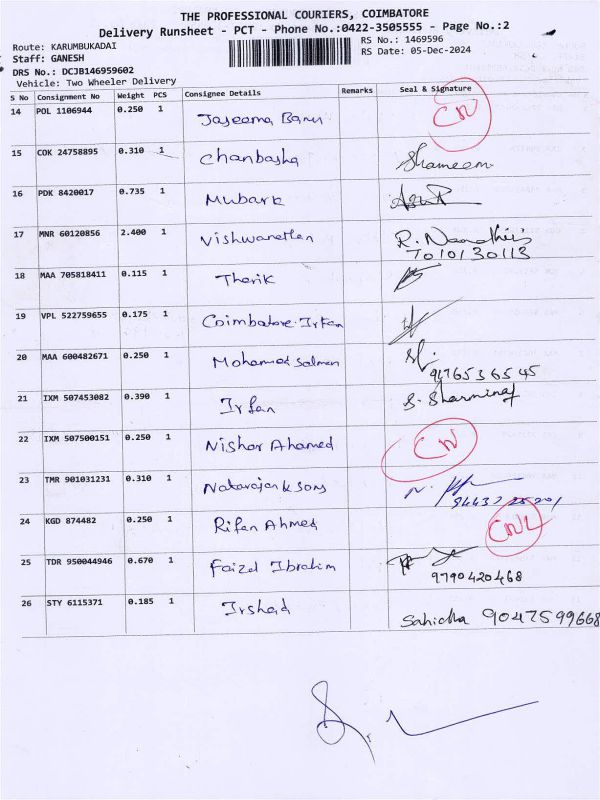 THE PROFESSIONAL COURIERS, COIMBATORE
Delivery Runsheet - PCT - Phone No.:0422-3505555 - Page No.:2
Route: KARUMBUKADAI
Staff: GANESH
DRS No.: DCJB146959602
Vehicle: Two Wheeler Delivery
RS No.: 1469596
RS Date: 05-Dec-2024
S No Consignment No Weight PCS Consignee Details Remarks Seal & Signature
14 POL 1106944 0.250 1 Jaseema Banu CN
15 COK 24758895 0.310 1 Chanbasha Shameem
16 PDK 8420017 0.735 1 Mubark
17 MNR 60120856 2.400 1 Vishwanethan R. Nandhini
7010130113
18 MAA 705818411 0.115 1 Tharik
19 VPL 522759655 0.175 1 Coimbatore Irfan
20 MAA 600482671 0.250 1 Mohamed Salman
9176536545
21 IXM 507453082 0.390 1 Irfan S. Sharminaf
22 IXM 507500151 0.250 1 Nishar Ahamed CN
23 TMR 901031231 0.310 1 Natarajan & Sons N.
94437 25201
24 KGD 874482 0.250 1 Rifan Ahmed CNL
25 TDR 950044946 0.670 1 Faizal Ibrahim
9790420468
26 STY 6115371 0.185 1 Irshad Sahidha 9047599668